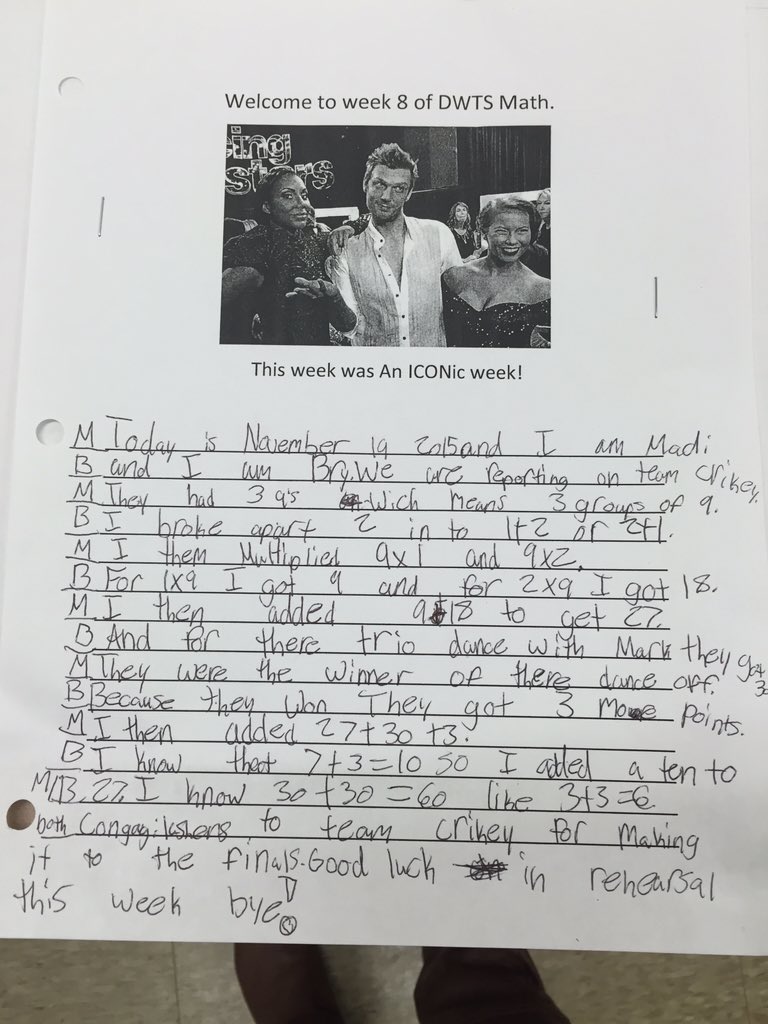 Welcome to week 8 of DWTS Math.
ing
stars
This week was An ICONic week!
M Today is November 19 2015 and I am Madi
B and I am Bry. We are reporting on team Crikey.
M They had 3 9's wich means 3 groups of 9.
B I broke apart 2 in to 1+2 or 2+1.
M I them Multiplied 9x1 and 9x2.
B For 1x9 I got 9 and for 2x9 I got 18.
M I then added 9+18 to get 27.
B And for there trio dance with Mark they got 30
M They were the winner of there dance off.
B Because they won They got 3 more points.
M I then added 27+30+3.
B I know that 7+3=10 so I added a ten to
M/B 27. I know 30+30=60 like 3+3=6
both Congagilashens to team crikey for making
it to the finals. Good luck in rehearsal
this week bye!